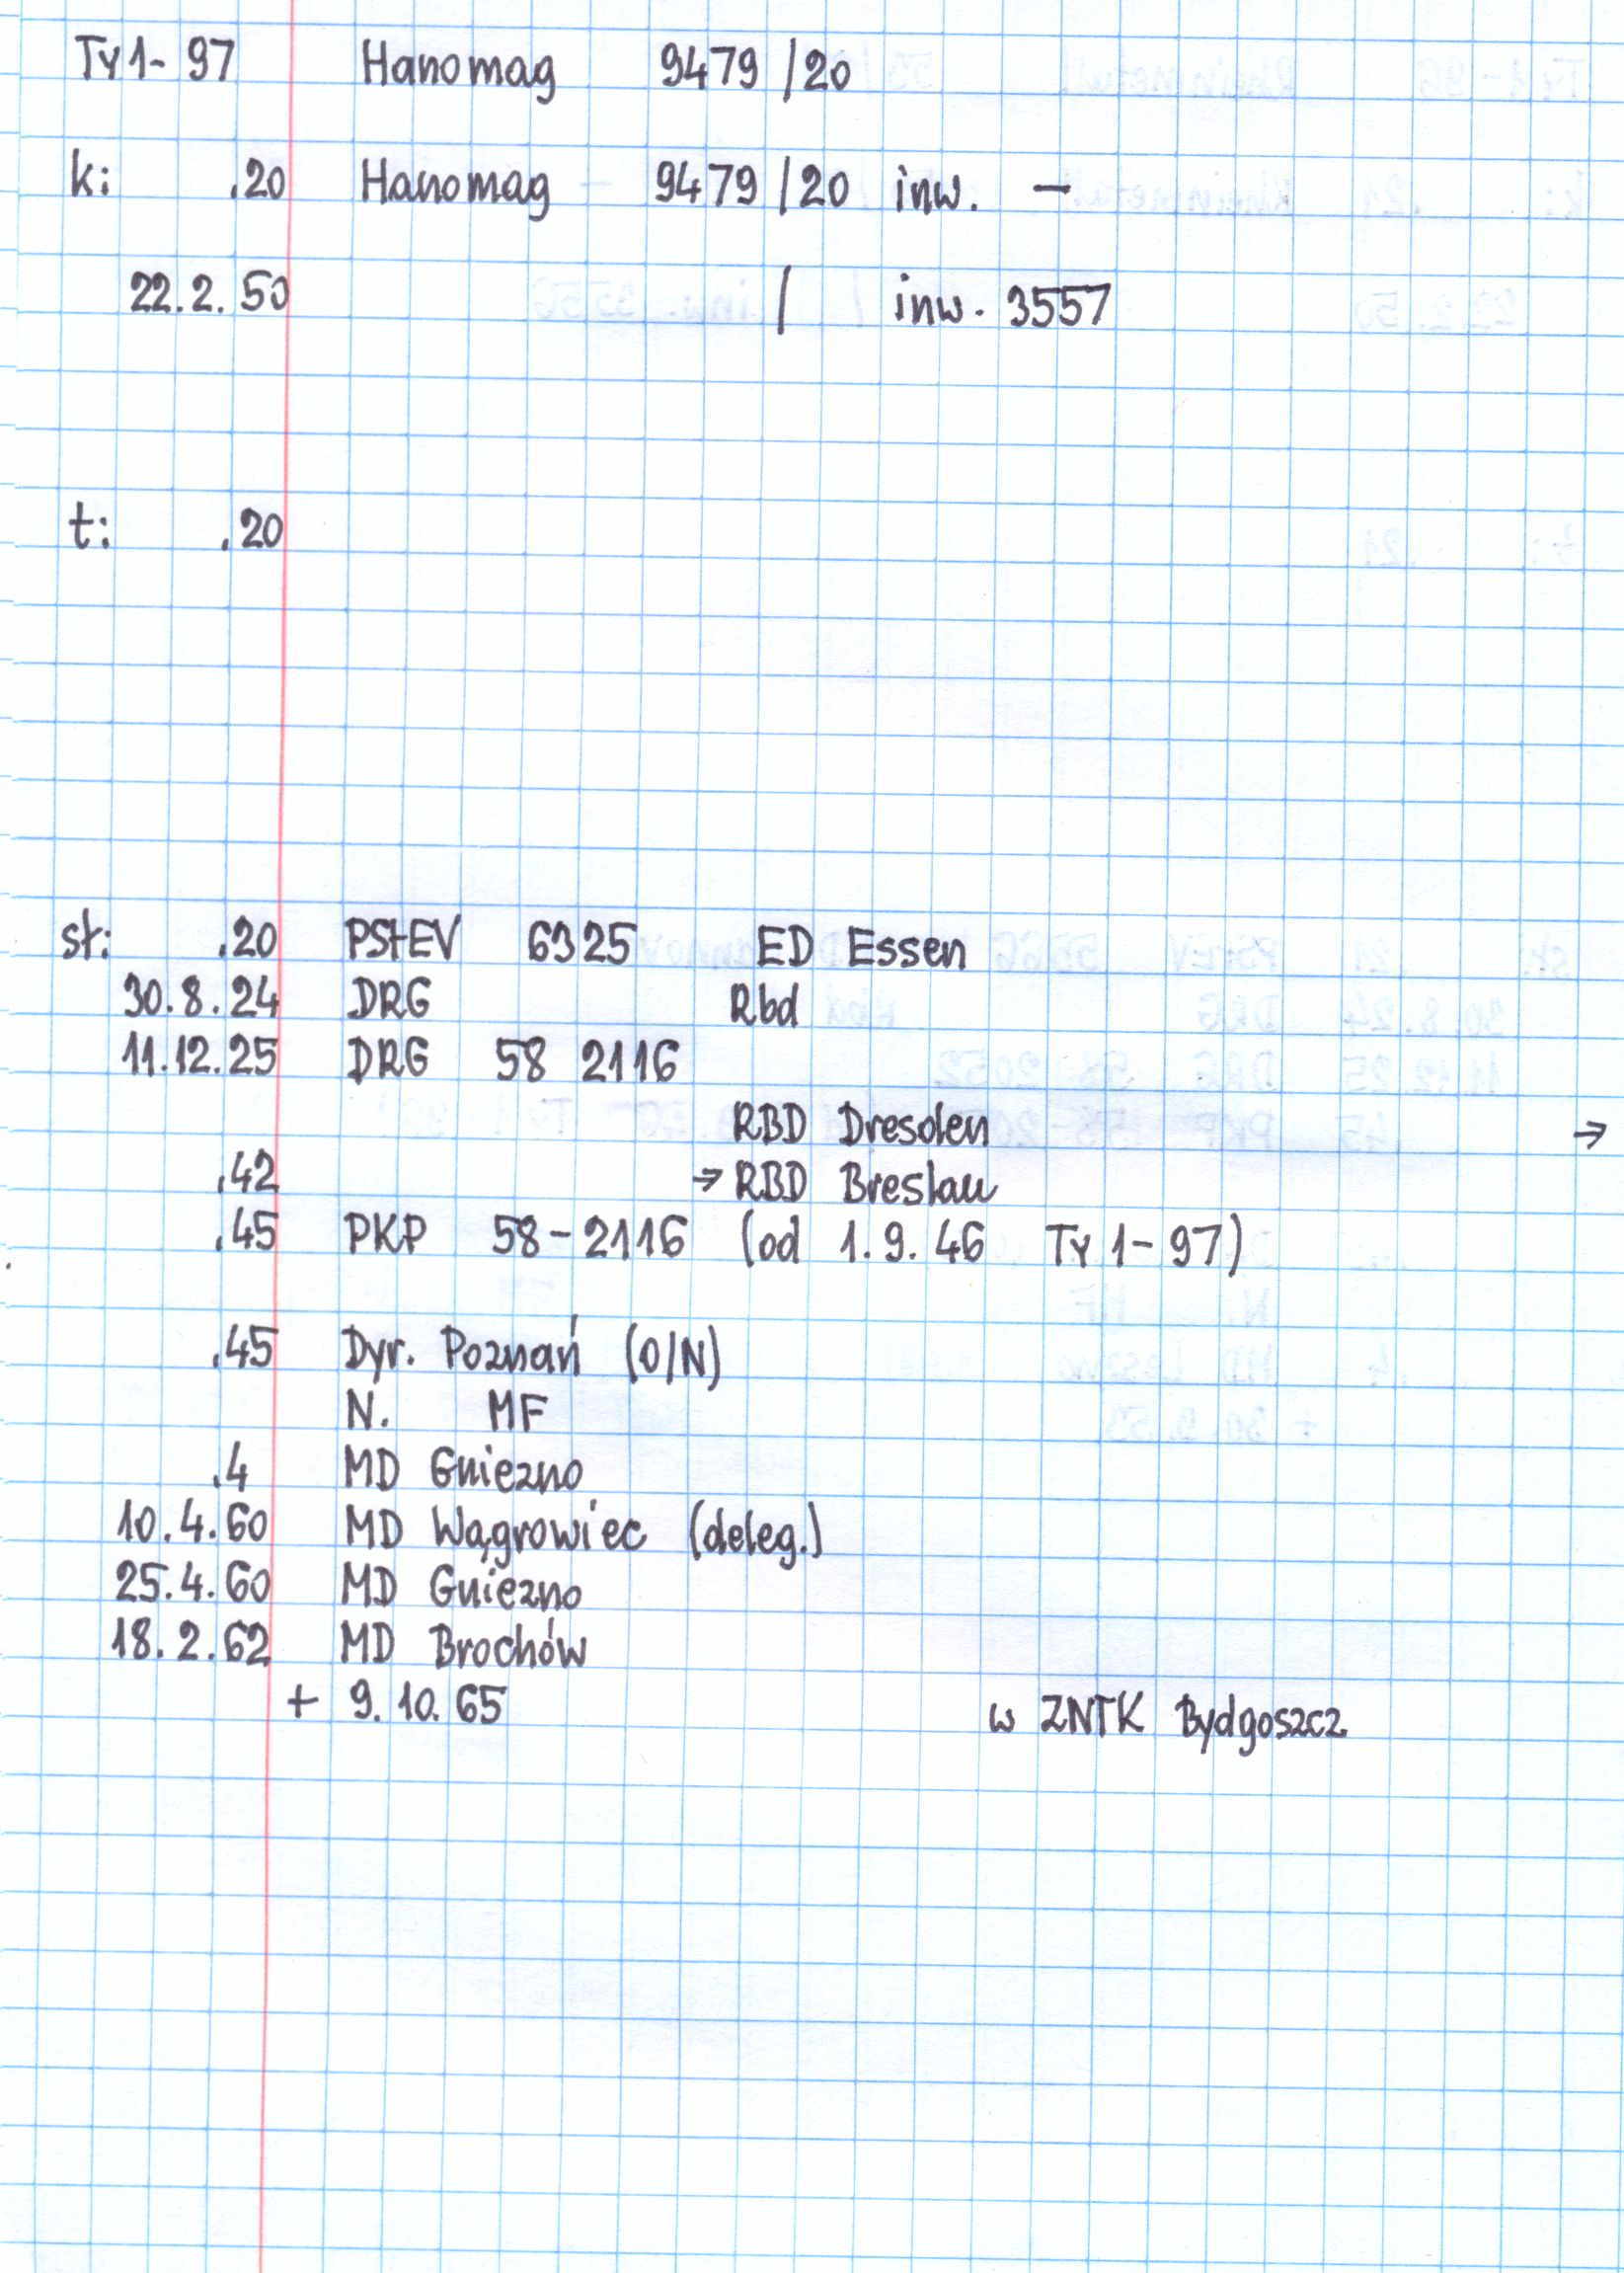 Ty1-97 Hanomag 9479/20
k: .20 Hanomag - 9479/20 inw. -
22.2.50 / inw. 3557
t: .20
st: .20 PStEV 6325 ED Essen
30.8.24 DRG Rbd
11.12.25 DRG 58 2116
RBD Dresden →
.42 → RBD Breslau
.45 PKP 58-2116 (od 1.9.46 Ty1-97)
.45 Dyr. Poznań (O/N)
N. MF
.4 MD Gniezno
10.4.60 MD Wągrowiec (deleg.)
25.4.60 MD Gniezno
18.2.62 MD Brochów
+ 9.10.65 w ZNTK Bydgoszcz